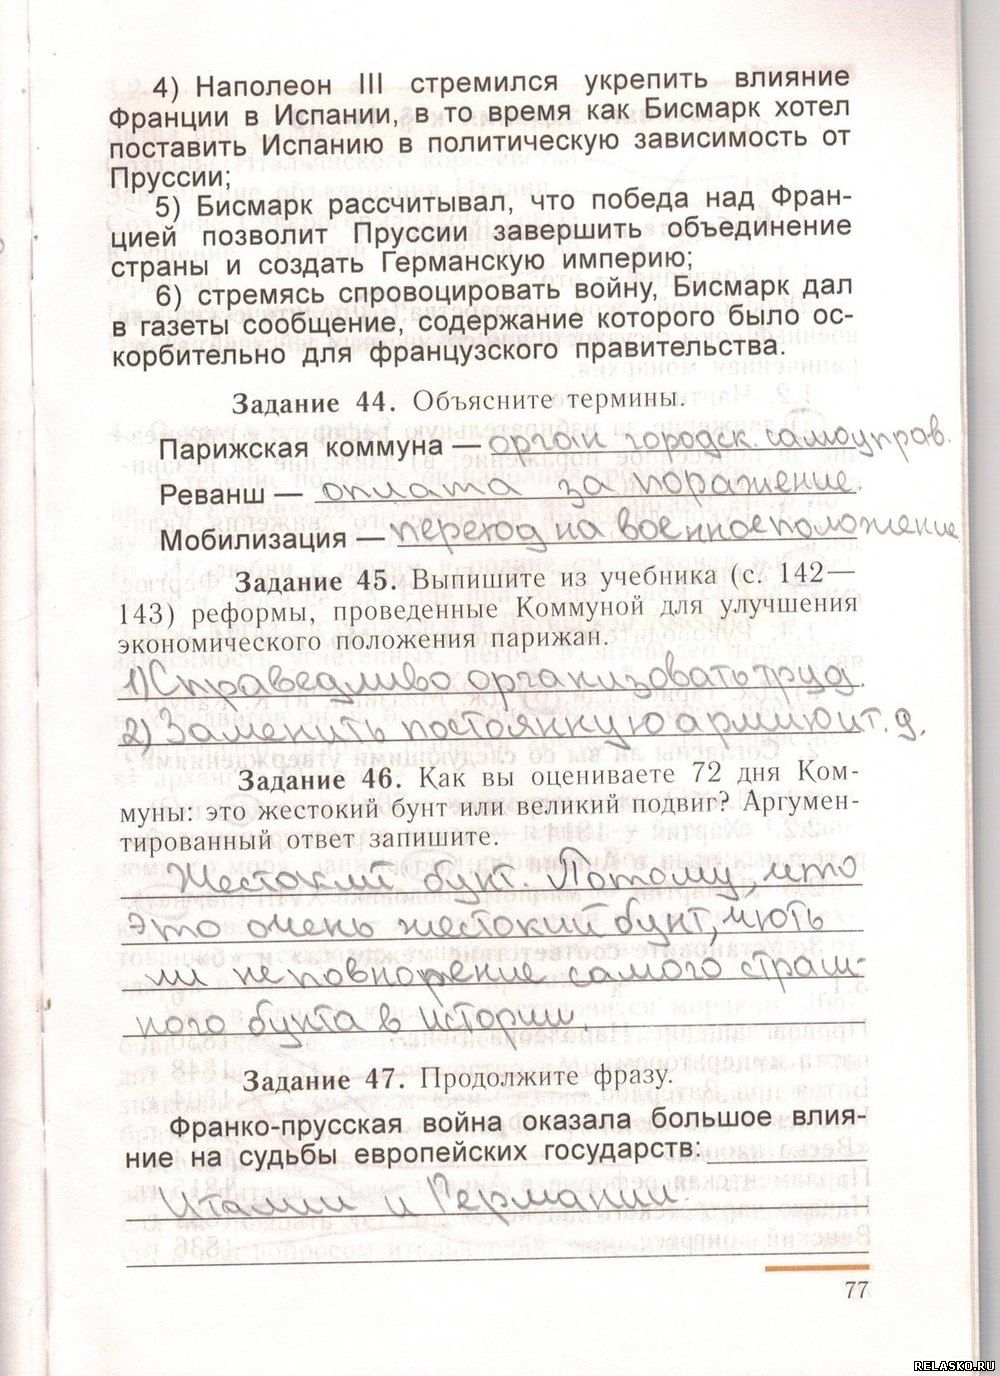 4) Наполеон III стремился укрепить влияние
Франции в Испании, в то время как Бисмарк хотел
поставить Испанию в политическую зависимость от
Пруссии;
5) Бисмарк рассчитывал, что победа над Фран-
цией позволит Пруссии завершить объединение
страны и создать Германскую империю;
6) стремясь спровоцировать войну, Бисмарк дал
в газеты сообщение, содержание которого было ос-
корбительно для французского правительства.
Задание 44. Объясните термины.
Парижская коммуна — орган городск. самоуправ.
Реванш — оплата за поражение.
Мобилизация — переход на военное положение
Задание 45. Выпишите из учебника (с. 142—
143) реформы, проведенные Коммуной для улучшения
экономического положения парижан.
1) Справедливо организовать труд.
2) Заменить постоянную армию и т. д.
Задание 46. Как вы оцениваете 72 дня Ком-
муны: это жестокий бунт или великий подвиг? Аргумен-
тированный ответ запишите.
Жестокий бунт. Потому, что
это очень жестокий бунт, чють
ли не самого страш-
ного бунта в истории.
Задание 47. Продолжите фразу.
Франко-прусская война оказала большое влия-
ние на судьбы европейских государств:
Италии и Германии.
77
RELASKO.RU